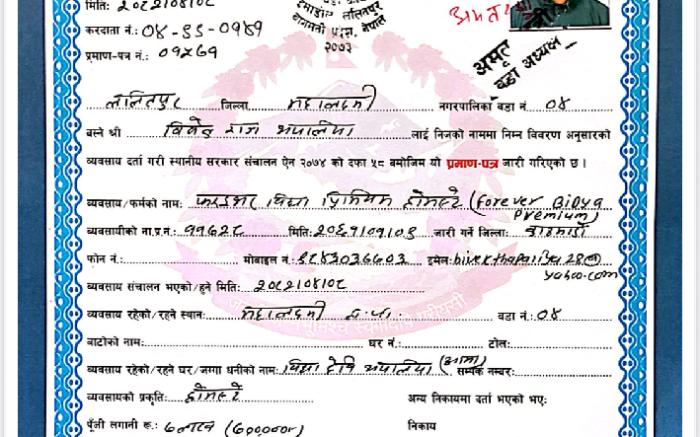 मिति: २०८२।०४।०८
करदाता नं.: ०४-११-०९४१
प्रमाण-पत्र नं.: ०१५७१
ललितपुर
नेपाल
२०७३
अमृत
वडा अध्यक्ष
ललितपुर जिल्ला महालक्ष्मी नगरपालिका वडा नं. ०४
बस्ने श्री विवेन्द्र राज थपालिया लाई निजको नाममा निम्न विवरण अनुसारको
व्यवसाय दर्ता गरी स्थानीय सरकार संचालन ऐन २०७४ को दफा ५८ बमोजिम यो प्रमाण-पत्र जारी गरिएको छ ।
व्यवसाय/फर्मको नाम: फरइभर विद्या प्रिमियम होमस्टे (Forever Bidya Premium)
व्यवसायीको ना.प्र.न.: ११६२८ मिति: २०६१।०१।०९ जारी गर्ने जिल्ला: काठमाडौं
फोन नं.: मोबाइल नं.: ९८४३०३६६०३ इमेल:
yahoo.com
व्यवसाय संचालन भएको/हुने मिति: २०८२।०४।०८
व्यवसाय रहेको/रहने स्थान: महालक्ष्मी न.पा. वडा नं.: ०४
बाटोको नाम: घर नं.: टोल:
व्यवसाय रहेको/रहने घर/जग्गा धनीको नाम: विद्या देवि थपालिया (आमा) सम्पर्क नम्बर:
व्यवसायको प्रकृति: होमस्टे अन्य निकायमा दर्ता भएको भए:
पूँजी लगानी रू.: ७ लाख (७०००००।) निकाय